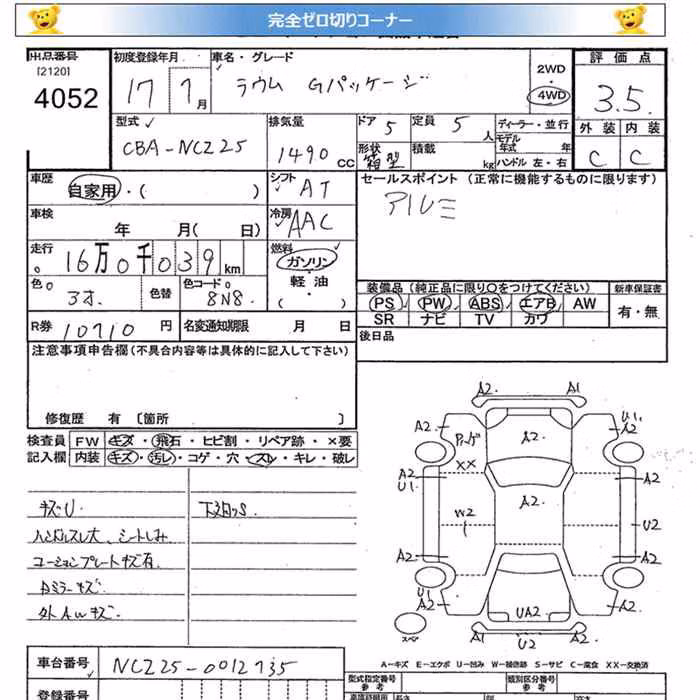 完全ゼロ切りコーナー
出品番号 初度登録年月 車名・グレード 評価点
[2120]
4052 17 7月 ラウム Gパッケージ 2WD 4WD 3.5
型式 排気量 ドア 5 定員 5人 ディーラー・並行 外装 内装
CBA-NCZ25 1490 CC 形状 箱型 積載 kg モデル年式 年 ハンドル 左・右 C C
車歴 自家用・( ) シフト AT セールスポイント (正常に機能するものに限ります)
車検 年 月( 日) 冷房 AAC アルミ
走行 16万0千039km 燃料 ガソリン
軽油
( )
色 色替 色コード 8N8 装備品(純正品に限り〇をつけてください) 新車保証書
PS PW ABS エアB AW 有・無
SR ナビ TV カワ
R券 10710円 名変通知期限 月 日 後日品
注意事項申告欄(不具合内容等は具体的に記入して下さい)
修復歴 有 [箇所 ]
検査員 FW キズ・飛石・ヒビ割・リペア跡・×要
記入欄 内装 キズ・汚レ・コゲ・穴・スレ・キレ・破レ
キズU 下廻りS
ハンドルスレ大、シートしみ
コーションプレートキズ有
Bミラーキズ
外AWキズ
A2 A1
A2 U1 A2
A2
XX
A2 U1 A2
A2
W2 U2
A2 A2
U1 A2 UA2 A2
スペア A1 U2 A2
A-キズ E-エクボ U-凹み W-補修跡 S-サビ C-腐食 XX-交換済
車台番号 NCZ25-0012735
型式指定番号 参考 類別区分番号 参考
登録番号